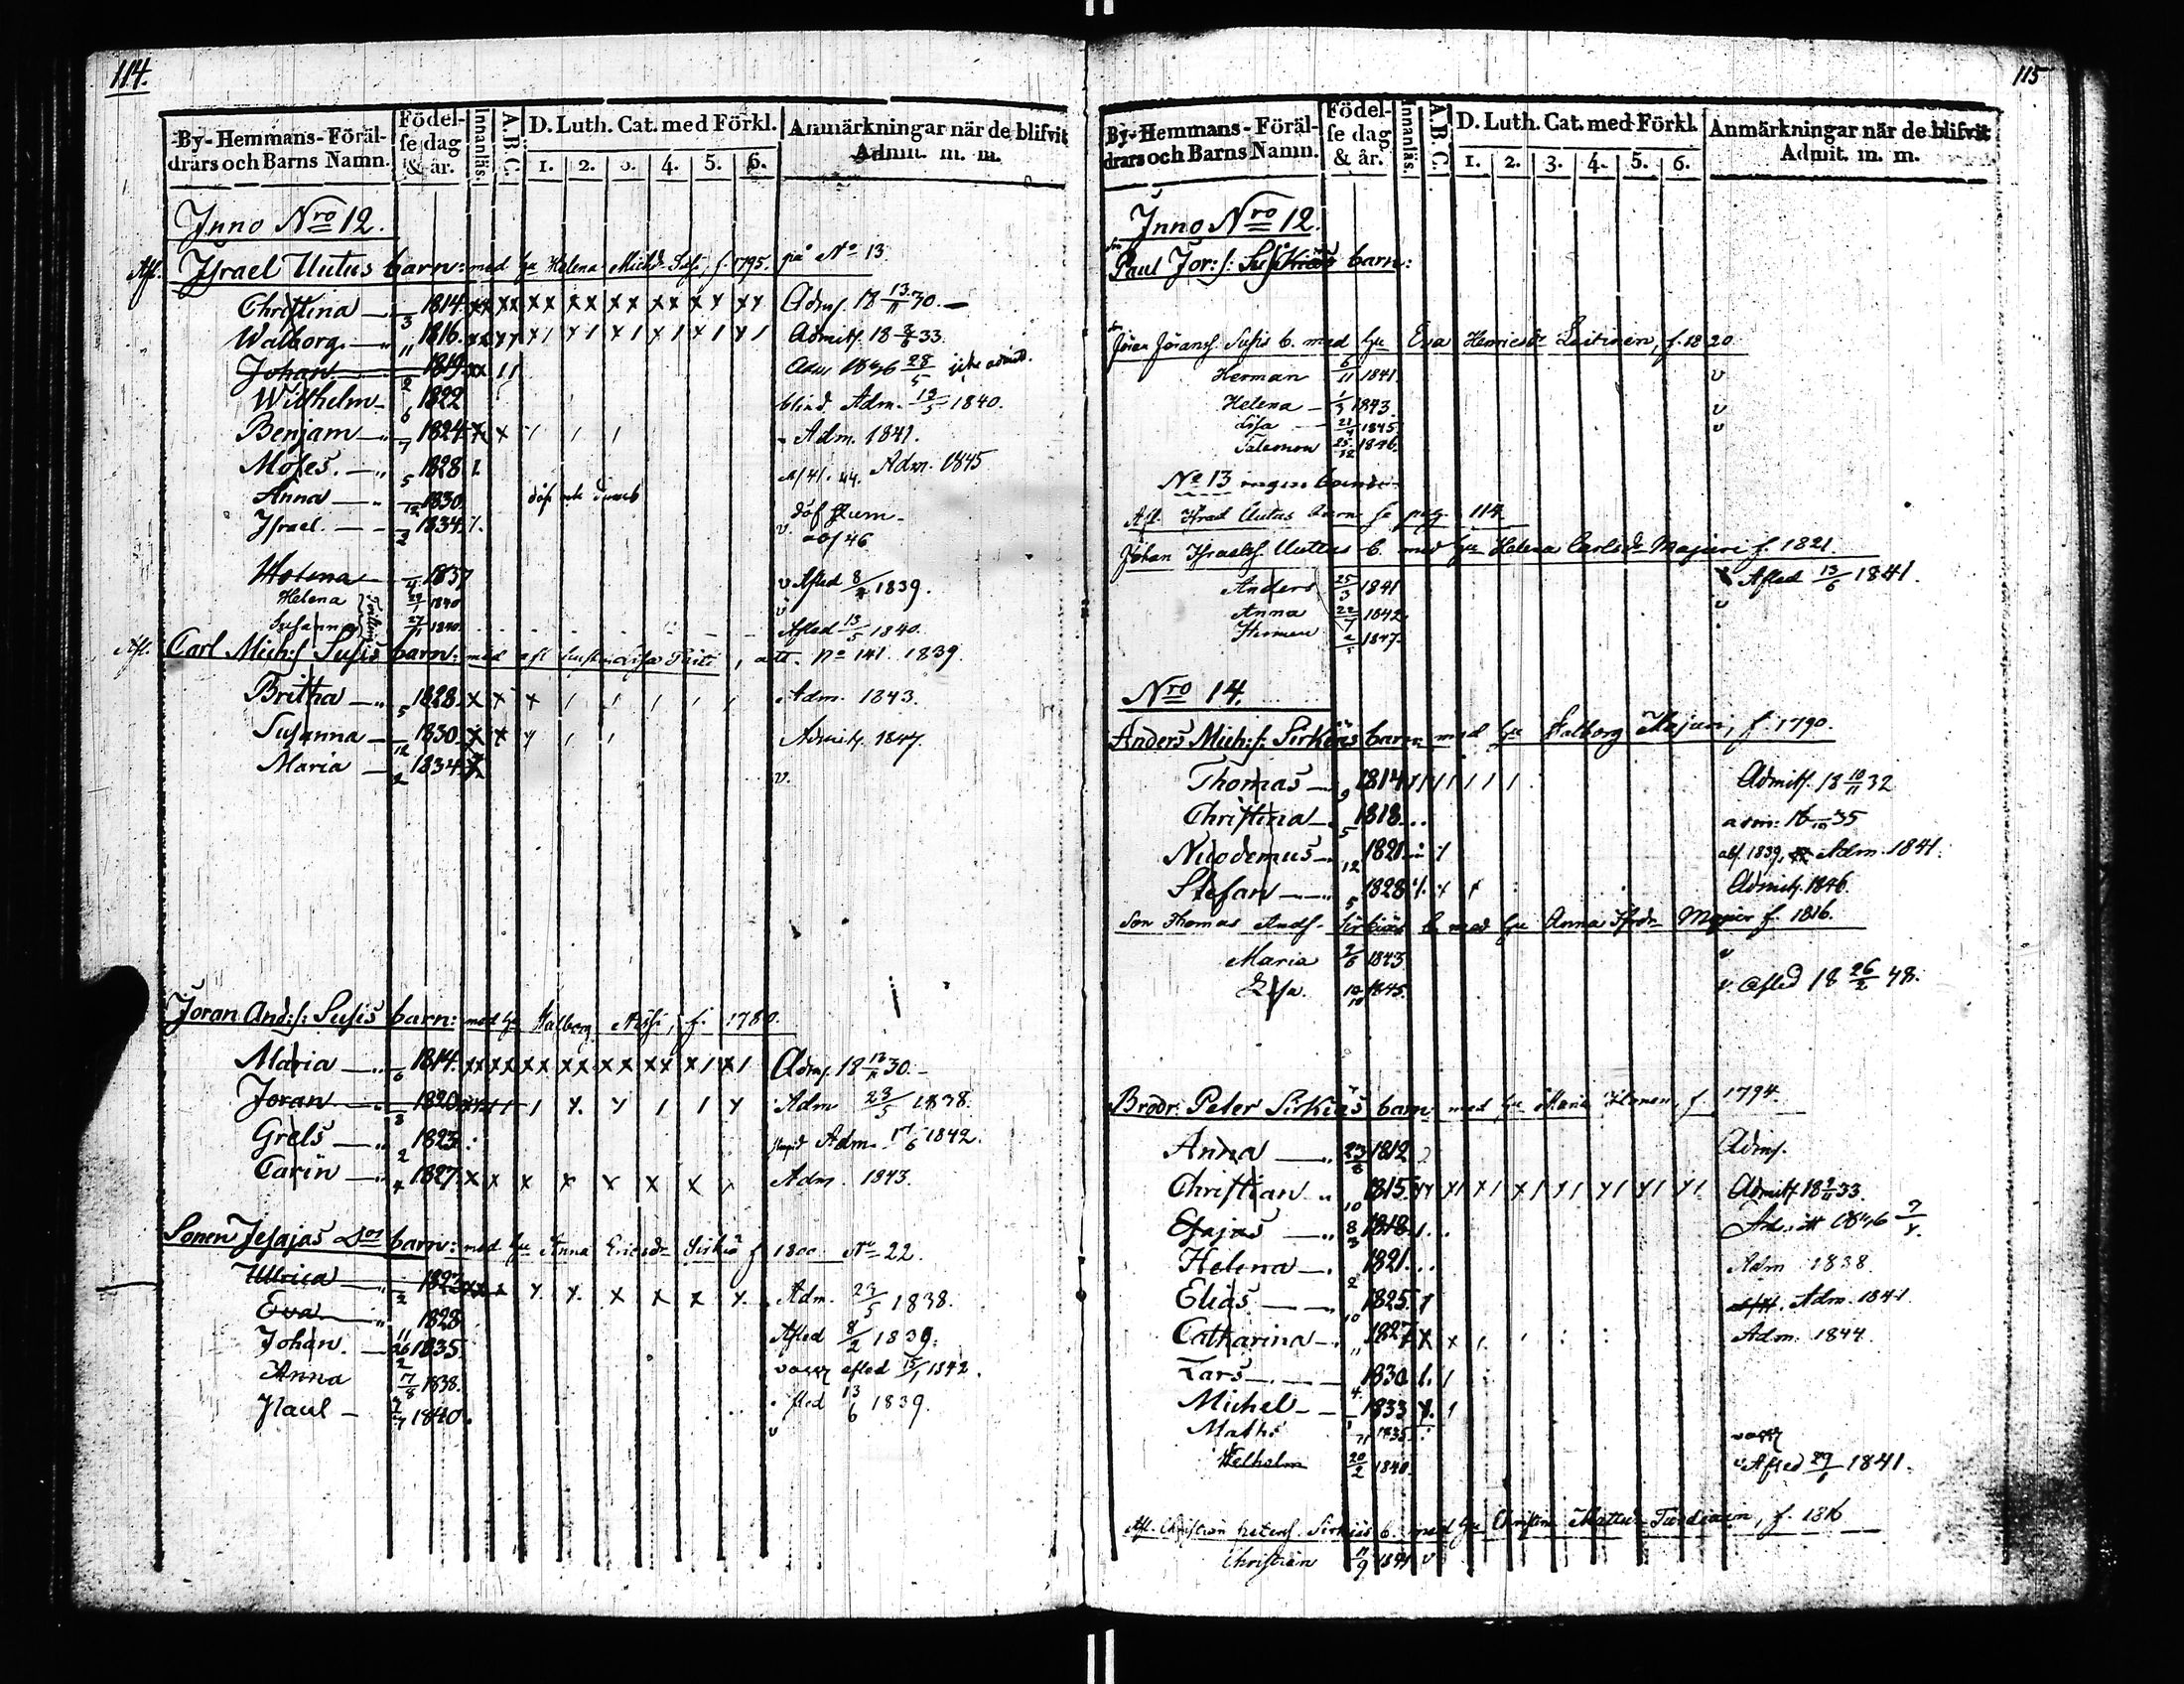 114.
By-Hemmans-Föräl-drars och Barns Namn. Födelse dag & år. Innanläs. A.B.C. D. Luth. Cat. med Förkl. 1. 2. 3. 4. 5. 6. Anmärkningar när de blifvit Admit. m. m.
Inno Nro 12.
Afl. Israel Uutus barn: med hu Helena Michsdr Susi, f. 1795. på No 13
Christina 3 1814 xx xx xx xx xx xx xx xx Adms. 18 13/11 30.
Walborg 11 1816. Admitt. 18 33.
Johan 2 1819 Adm 1836 28/5
Wilhelm 6 1822 blind Adm. 13/5 1840.
Benjam 7 1824 x x / / / Adm. 1841.
Moses. 5 1828 Adm. 1845
Anna 12 1830 döf och dumb döf stum
Israel. 2 1834 v. abs 46
Helena 4 1837 v Afled 8/2 1839.
Helena 27/1 1840 Tvilling v
Susanna 27/1 1840. Afled 13/5 1840.
Afl. Carl Mich:s Susis barn: med afl hustru Lisa att. No 141 1839.
Britha 5 1828 x x x / / / / / Adm. 1843.
Susanna 12 1830 x x y / / Admitt. 1847.
Maria 2 1834 v.
Joran And:s: Susis barn: med hu Walborg f. 1780.
Maria 6 1814 xx xx xx xx xx xx x/ x/ Adms. 18 13/11 30.
Joran 3 1820 Adm 23/5 1838.
Grels 2 1823 Adm. 17/6 1842.
Carin 4 1827 x x x x x x x x Adm. 1843.
Sonen Jesajas barn: med hu Anna Ericsdr Sirkiä f 1800 No 22.
Ulrica 2 1823 Adm. 23/5 1838.
Eva 11 1828 Afled 8/2 1839.
Johan. 26/2 1835 afled 15/1 1842.
Anna 17/8 1838. fled 13/6 1839.
Paul 1840. v
115
By-Hemmans-Föräl-drars och Barns Namn. Födelse dag & år. Innanläs. A.B.C. D. Luth. Cat. med Förkl. 1. 2. 3. 4. 5. 6. Anmärkningar när de blifvit Admit. m. m.
Inno Nro 12.
Paul Jor:s: barn:
Jöran Jöranss. Susis b. med hu Eva Henricsdr Leitinen, f. 1820
Herman 6/11 1841 v
Helena 1/3 1843. v
Lisa 21 1845 v
Salomon 25/12 1846.
No 13 ingen bonde
Afl. Israel Uutus barn se pag. 114
Johan Israelss. Uutus b. med hu Helena Carlsdr Majuri f. 1821.
Anders 25/3 1841 Afled 13/6 1841.
Anna 22/7 1842 v
1847.
Nro 14.
Anders Mich:s: Sirkiäs barn: med hu Walborg Majuri, f. 1790.
Thomas 9 1814 Admitt. 18 10/11 32
Christina 5 1818 adm: 18 35
Nicodemus 12 1821 abs. 1839, Adm. 1841.
Stefan 5 1828 Admitt. 1846.
Son Thomas Ands. Sirkiäs b. med hu Anna f. 1816.
Maria 1843 v
Lisa. 1845. v. Afled 18 26/2 48.
Brodr. Peter Sirkiäs barn: med hu Maria f 1794
Anna 23/8 1812 Adms.
Christian 10 1815 Admitt 18 33.
Esajas 8/3 1818 1836
Helena 2 1821 Adm 1838.
Elias 10 1825 Adm. 1841.
Catharina 11 1827 x x Adm. 1844.
Lars 4 1830
Michel 1 1833
Maths 1835
Wilhelm 20/2 1840 v Afled 29/1 1841.
Afl. Christian Peterss. Sirkiäs b. med hu Christina Mattsdr f. 1816
Christian v